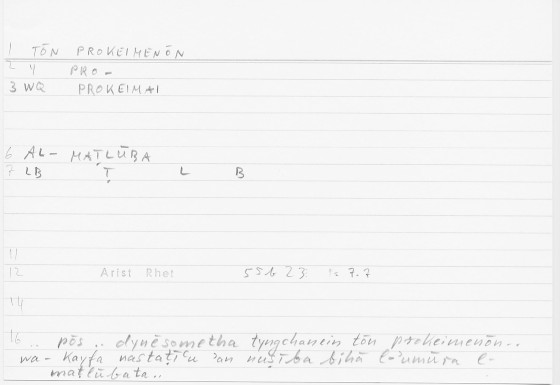 1 TŌN PROKEIMENŌN
2 Y PRO-
3 WQ PROKEIMAI
6 AL- MAṬLŪBA
7 LB Ṭ L B
11
12 Arist Rhet 55b23 7.7
14
16 .. pōs .. dynēsometha tyngchanein tōn prokeimenōn..
wa- kayfa nastaṭī'u 'an nuṣība bihā l-'umūra l-
maṭlūbata..